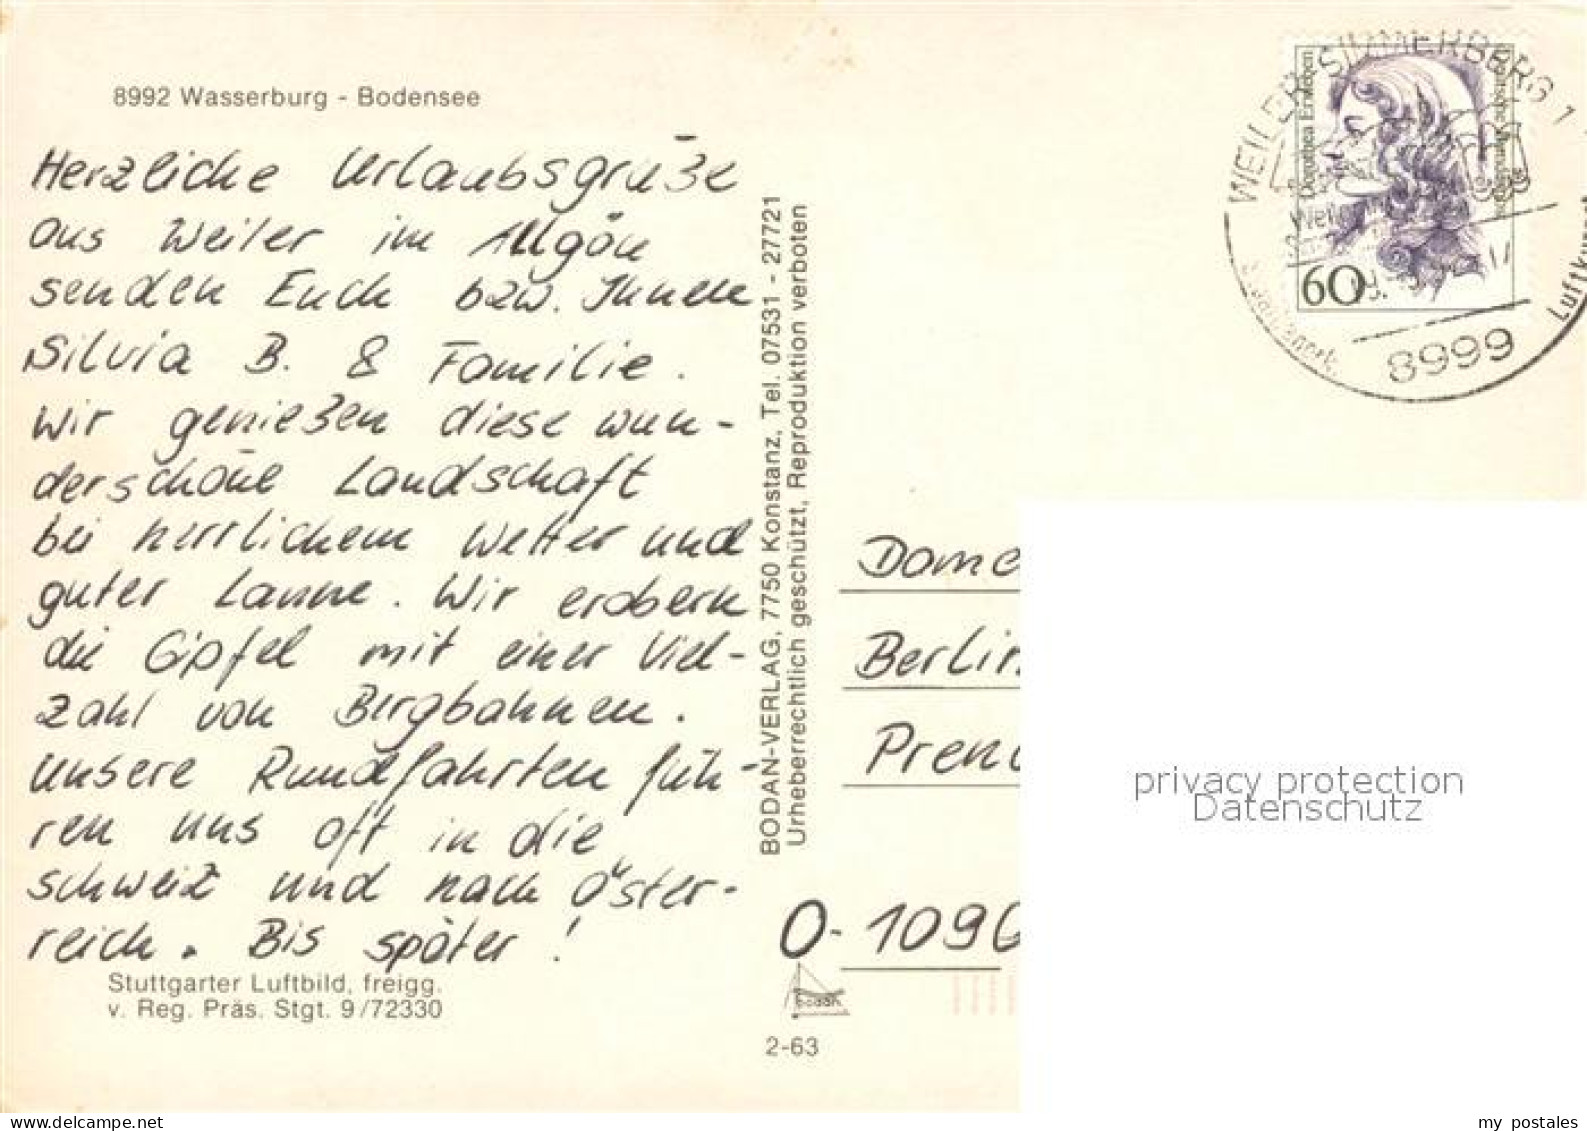 8992 Wasserburg - Bodensee
Herzliche Urlaubsgrüße
aus Weiler im Allgäu
senden Euch bzw. Ihnen
Silvia B. & Familie.
Wir genießen diese wun-
derschöne Landschaft
bei herrlichem Wetter und
guter Laune. Wir erobern
die Gipfel mit einer Viel-
zahl von Bergbahnen.
Unsere Rundfahrten füh-
ren uns oft in die
Schweiz und nach Öster-
reich. Bis später!
Stuttgarter Luftbild, freigg.
v. Reg. Präs. Stgt. 9/72330
BODAN-VERLAG, 7750 Konstanz, Tel. 07531 - 27721
Urheberrechtlich geschützt, Reproduktion verboten
bodan
2-63
WEILER-SIMMERBERG 1
Dorothea Erxleben
Deutsche Bundespost
60
8999
Luftkurort
Dame
Berlin
Pren
O-1096
privacy protection
Datenschutz
my postales